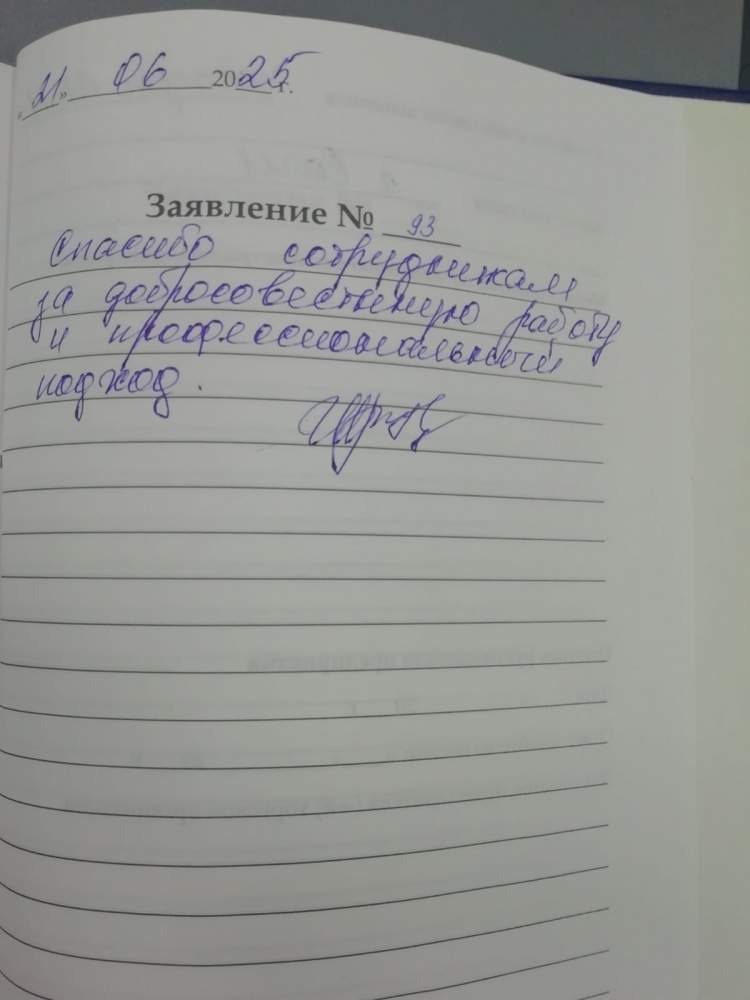 «21» 06 2025 г.
Заявление № 93
Спасибо сотрудникам
за добросовестную работу
и профессиональный
подход.